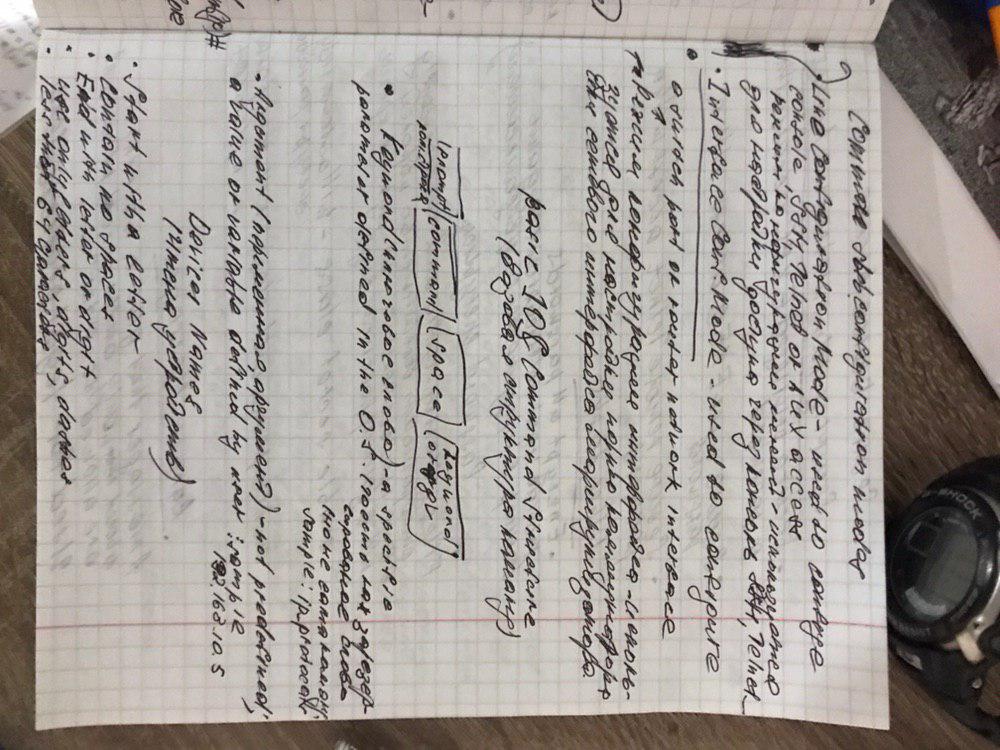 Command subconfiguration modes
• Line Configuration Mode - used to configure
console, SSH, Telnet or AUX access
Режим конфигурации линий - используется
для настройки доступа через консоль SSH, Telnet
• Interface Conf. Mode - used to configure
a switch port or router network interface
Режим конфигурации интерфейса - исполь-
зуется для настройки порта коммутатора
или сетевого интерфейса маршрутизатора.
Basic IOS Command Structure
(Базовая структура команд)
command
space
Keyword
• Keyword (ключевое слово) - a specific
parameter defined in the O.S.
слово
sample: ip protocols
• Argument - not predefined;
a value or variable defined by user: sample
192.168.10.5
Device Names
(Имена устройств)
• Start with a letter
• Contain no spaces
• End with letter or digit
• Use only letters, digits, dashes
• less than 64 characters
G-SHOCK